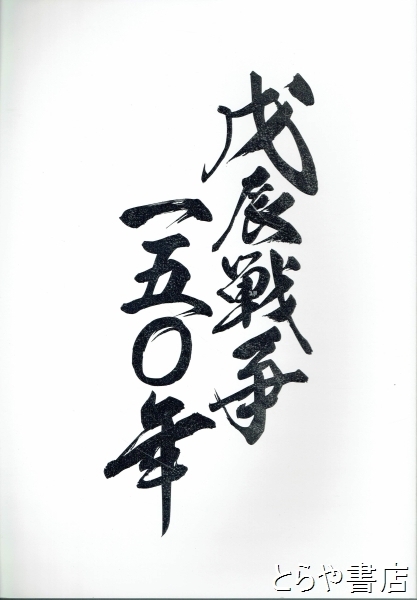 戊辰戦争
一五〇年
とらや書店